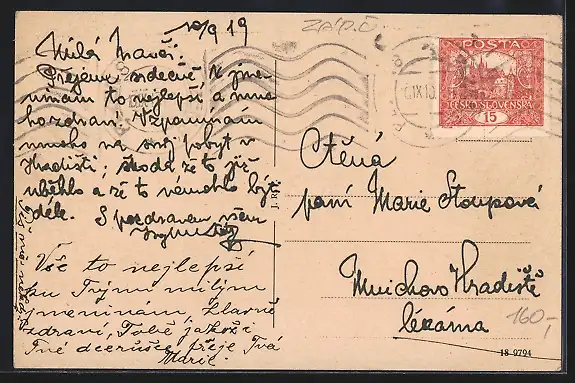 10/9 19
Milá Mančo!
Přejeme srdečně, k jme-
ninám to nejlepší, a mno
ho zdraví. Vzpomínám
mnoho na svůj pobyt v
Hradišti; škoda že to již
uběhlo a že to nemohlo být
déle. S pozdravem všem
Vše to nejlepší
ku Tvým milým
jmeninám, hlavně
zdraví, Tobě jakož i
Tvé dcerušce přeje Tvá
Marie.
J. R.
POSTA
ČESKO-SLOVENSKÁ
15
IX 19
Ctěná
paní Marie Stoupová
Mnichovo Hradiště
lékárna
160,-
18 9794